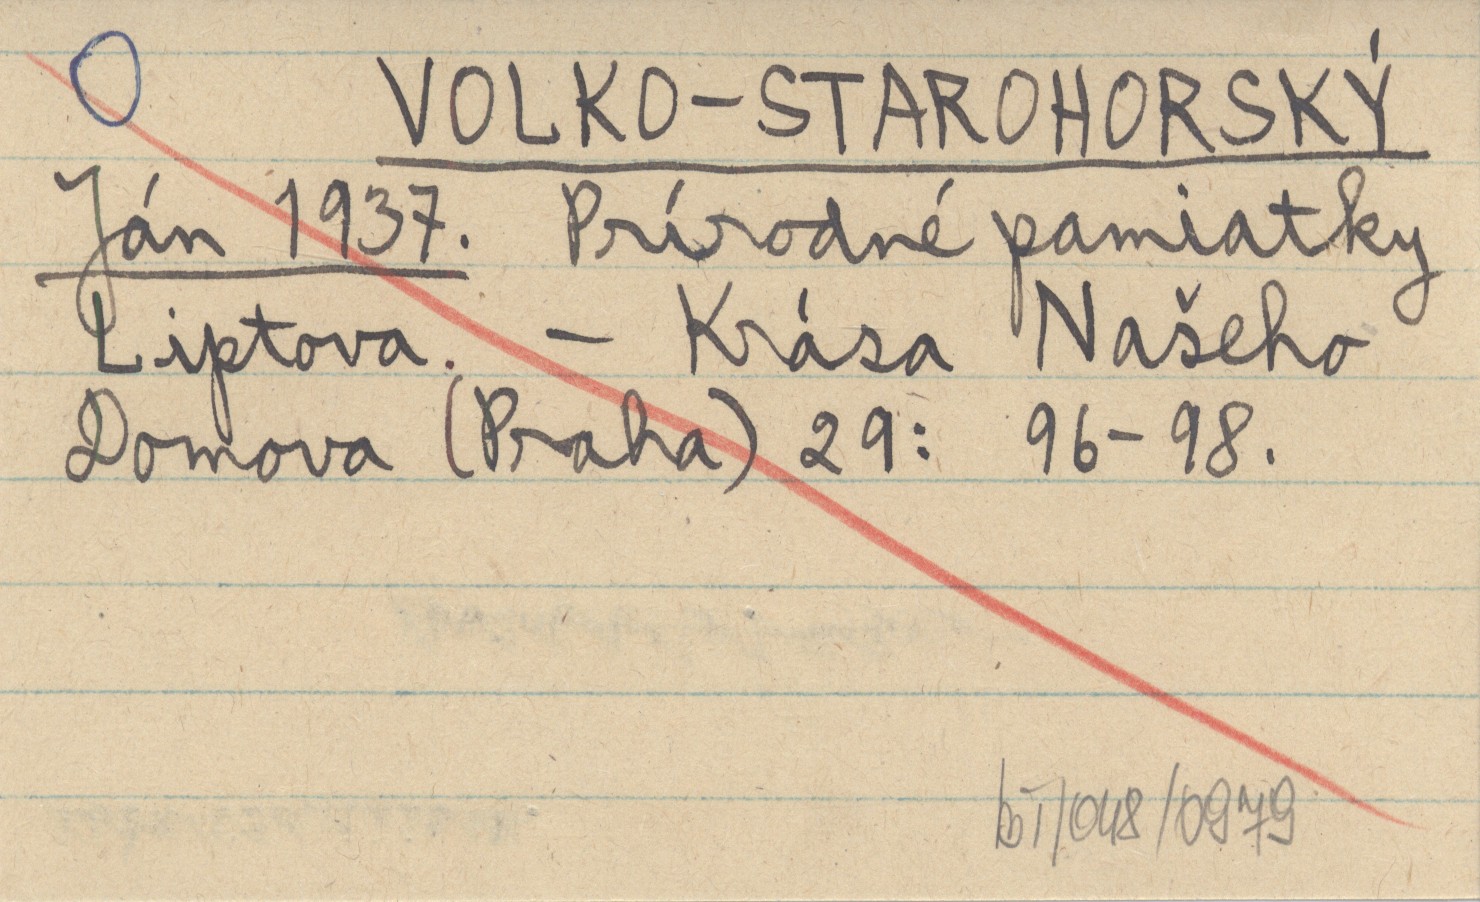 VOLKO-STAROHORSKÝ
Ján 1937. Prírodné pamiatky
Liptova. - Krása Našeho
Domova (Praha) 29: 96-98.
bI/048/0979